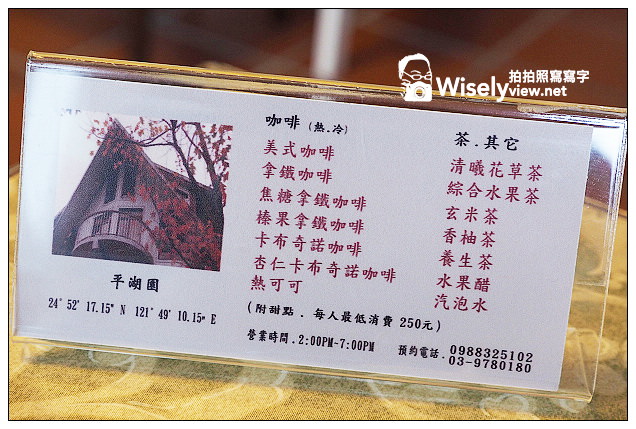 拍拍照寫寫字
Wiselyview.net
咖啡 (熱.冷)
美式咖啡
拿鐵咖啡
焦糖拿鐵咖啡
榛果拿鐵咖啡
卡布奇諾咖啡
杏仁卡布奇諾咖啡
熱可可
茶.其它
清曦花草茶
綜合水果茶
玄米茶
香柚茶
養生茶
水果醋
汽泡水
(附甜點.每人最低消費 250元)
營業時間.2:00PM~7:00PM
預約電話.0988325102
03-9780180
平湖園
24° 52' 17.15" N 121° 49' 10.15" E